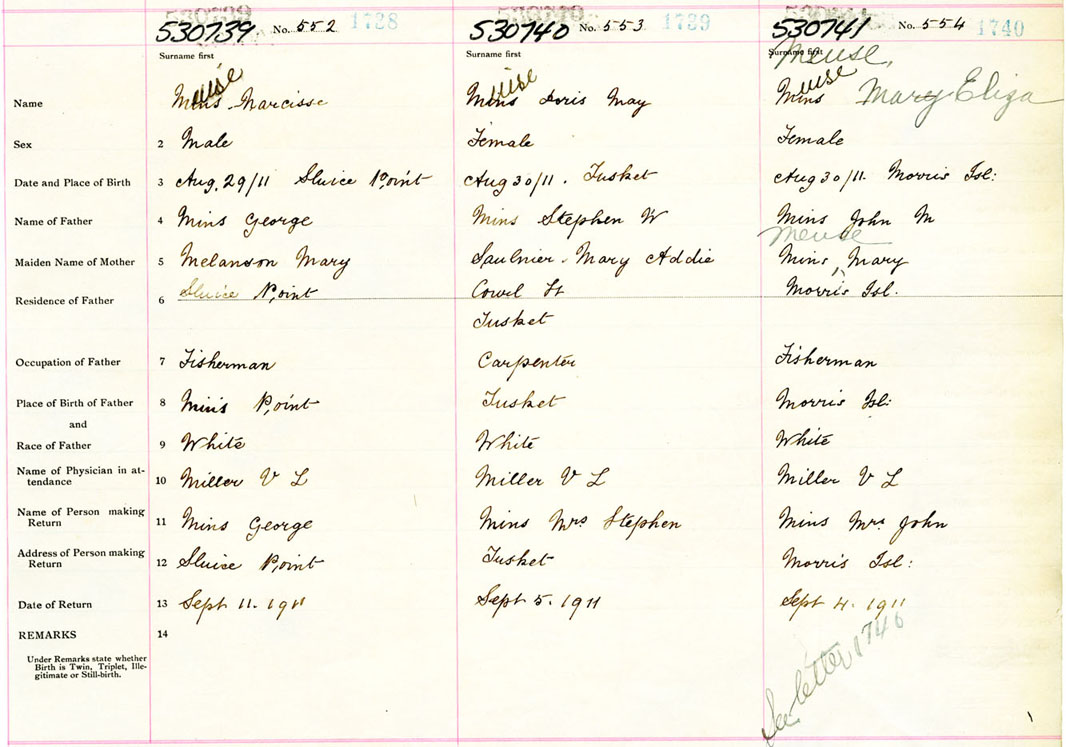 530739 No. 552 1738
530740 No. 553 1739
530741 No. 554 1740
Surname first Surname first Surname first
Meuse,
Name Mins Narcisse Mins Doris May Mins Mary Eliza
euse euse euse
Sex 2 Male Female Female
Date and Place of Birth 3 Aug. 29/11 Sluice Point Aug 30/11. Tusket Aug 30/11. Morris Isl:
Name of Father 4 Mins George Mins Stephen W Mins John M
Meuse
Maiden Name of Mother 5 Melanson Mary Saulnier. Mary Addie Mins, Mary
Residence of Father 6 Sluice Point Cowel St Morris Isl.
Tusket
Occupation of Father 7 Fisherman Carpenter Fisherman
Place of Birth of Father 8 Min's Point Tusket Morris Isl:
and
Race of Father 9 White White White
Name of Physician in at-
tendance 10 Miller V L Miller V L Miller V L
Name of Person making
Return 11 Mins George Mins Mrs Stephen Mins Mrs John
Address of Person making
Return 12 Sluice Point Tusket Morris Isl:
Date of Return 13 Sept 11. 1911 Sept 5. 1911 Sept 4. 1911
REMARKS 14
Under Remarks state whether
Birth is Twin, Triplet, Ille-
gitimate or Still-birth.
See letter 1746